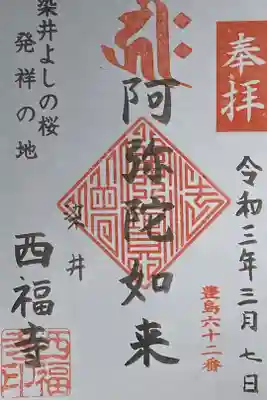 奉拝
令和三年三月七日
豊島六十二番
阿弥陀如来
染井
西福寺
染井よしの桜
発祥の地